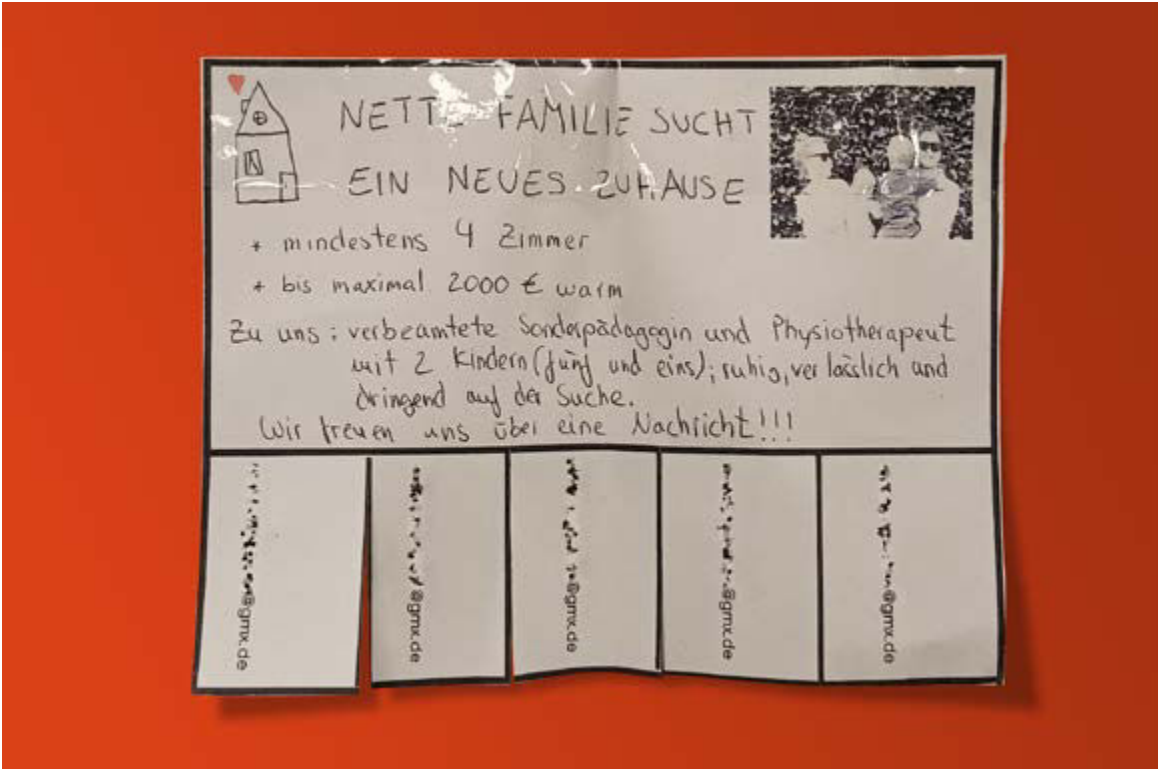 NETTE FAMILIE SUCHT
EIN NEUES ZUHAUSE
+ mindestens 4 Zimmer
+ bis maximal 2000 € warm
Zu uns: verbeamtete Sonderpädagogin und Physiotherapeut
mit 2 Kindern (fünf und eins); ruhig, verlässlich und
dringend auf der Suche.
Wir freuen uns über eine Nachricht!!!
@gmx.de
@gmx.de
@gmx.de
@gmx.de
@gmx.de